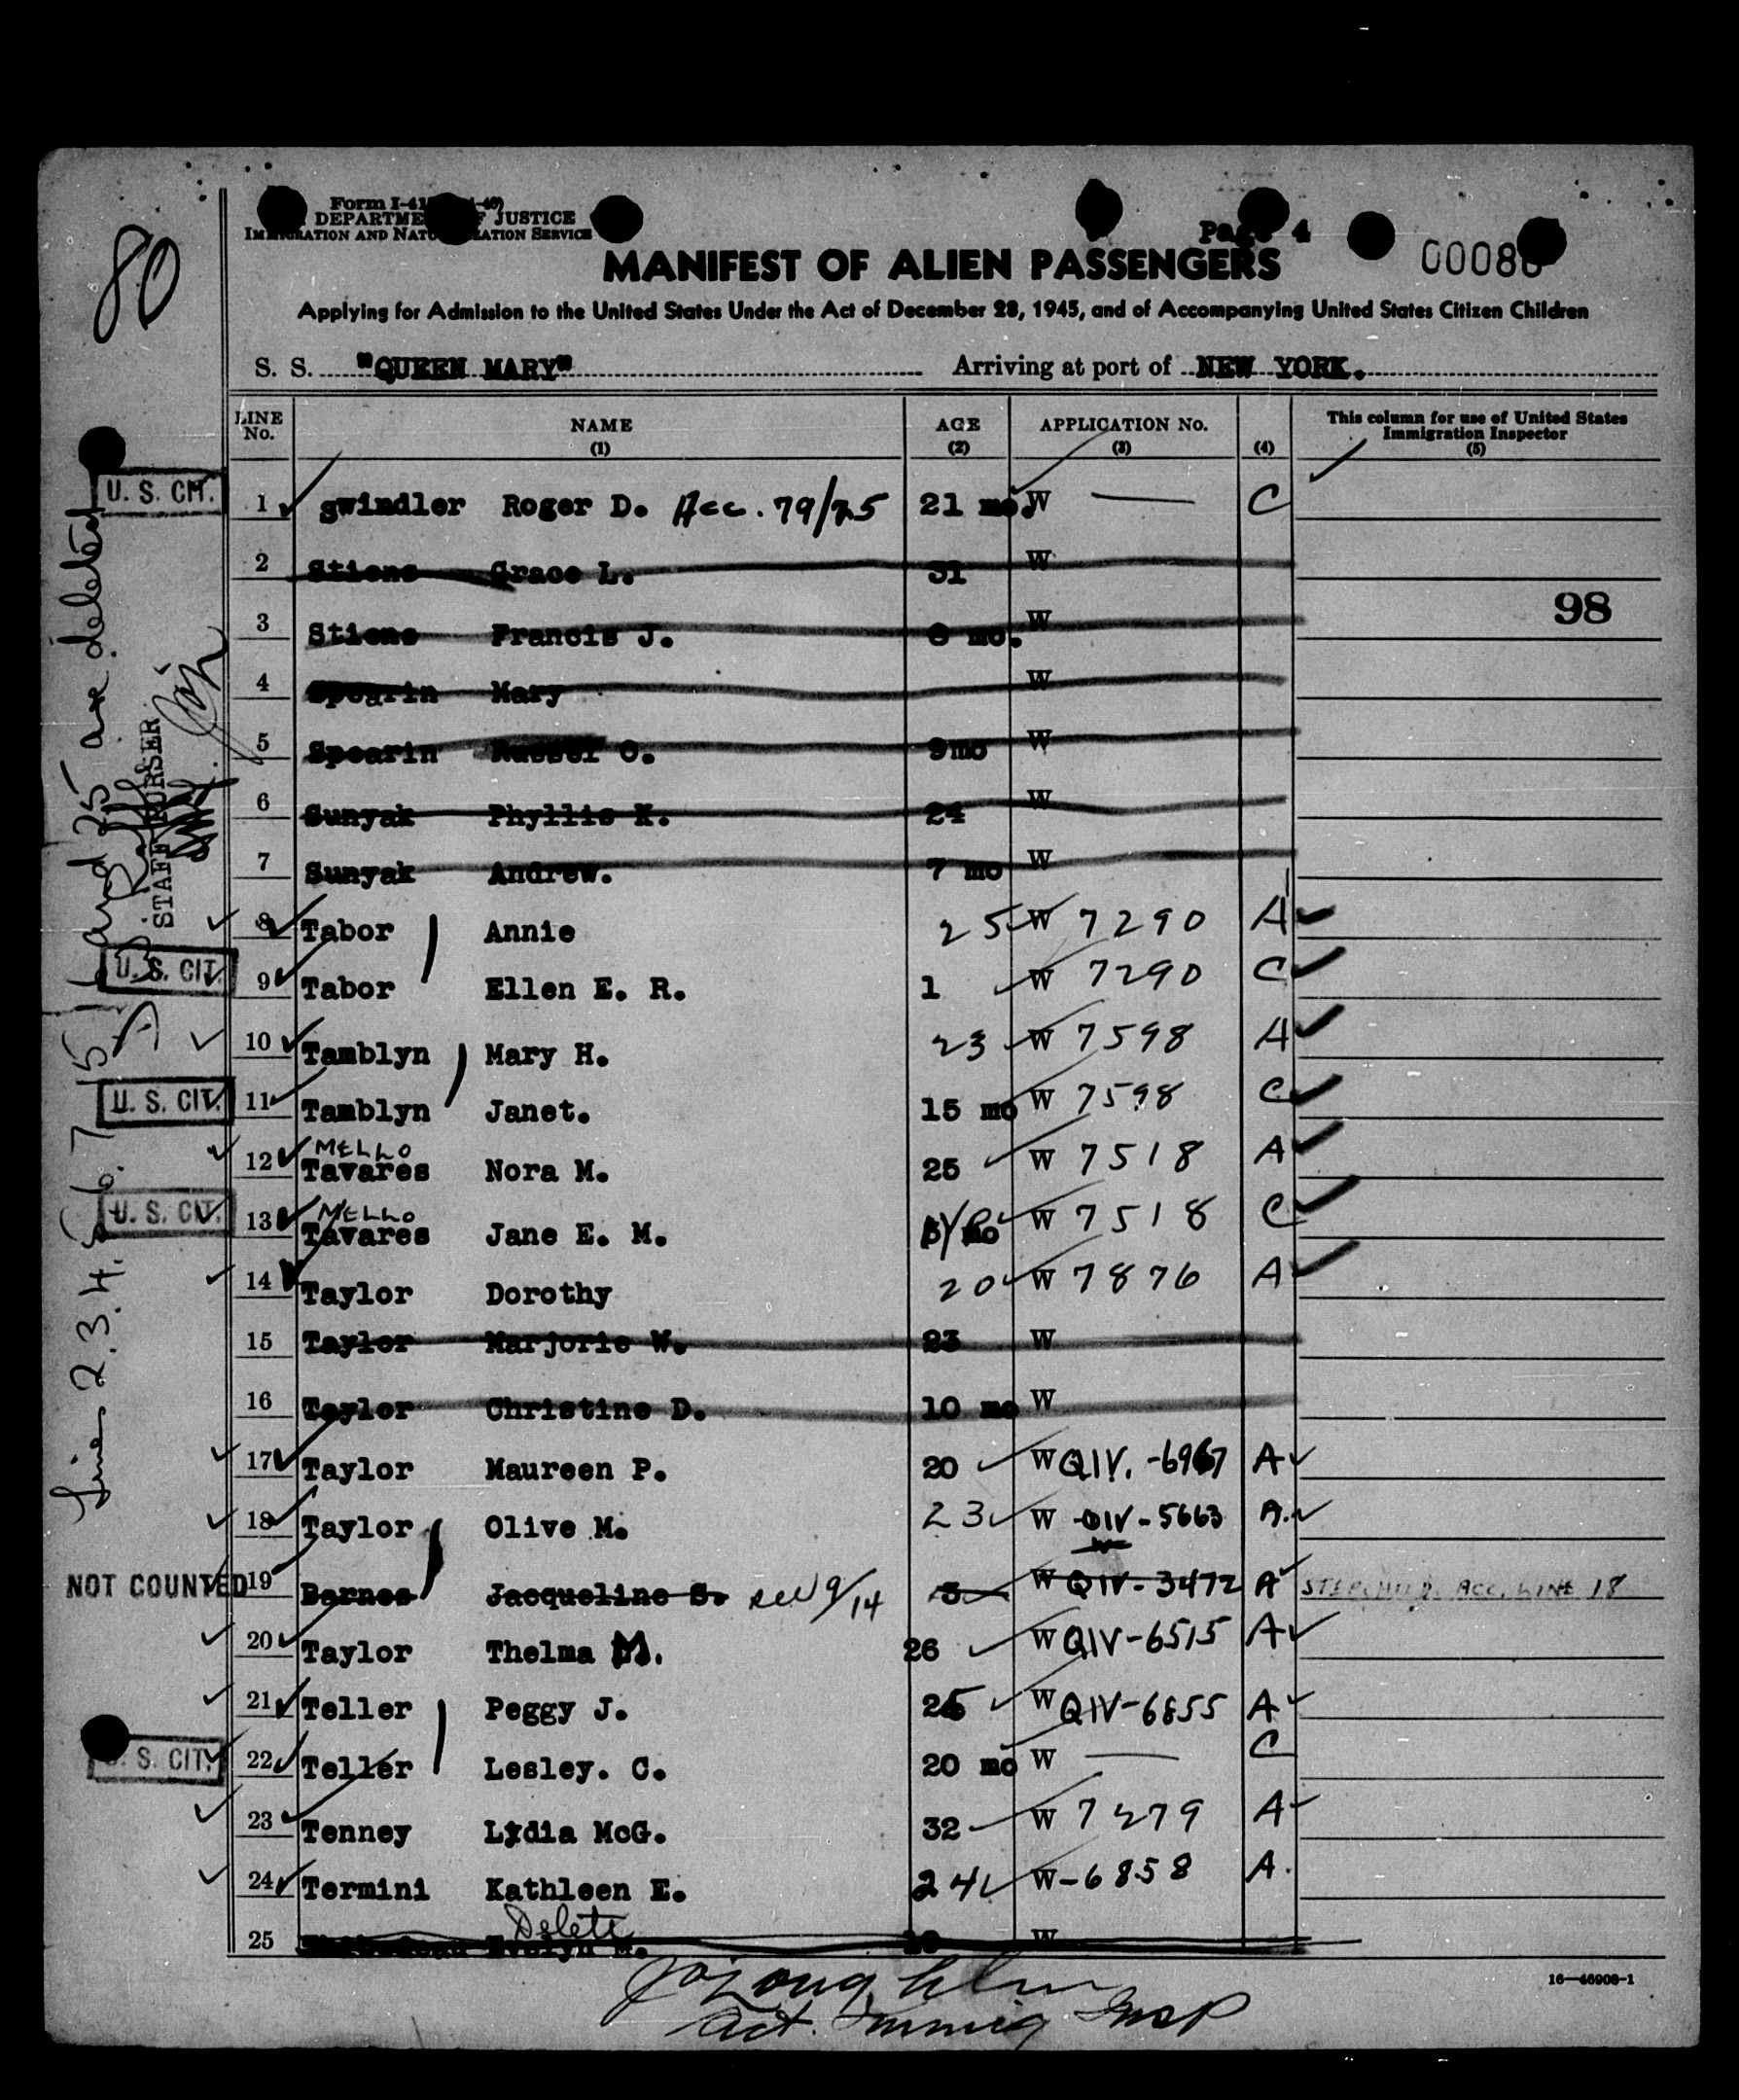 80
Page 4
MANIFEST OF ALIEN PASSENGERS
Applying for Admission to the United States Under the Act of December 28, 1945, and of Accompanying United States Citizen Children
S. S. "QUEEN MARY" Arriving at port of NEW YORK.
LINE No. NAME (1) AGE (2) APPLICATION No. (3) (4) This column for use of United States Immigration Inspector (5)
U. S. CIT. 1 Swindler Roger D. Acc. 79/25 21 mo. W — C
2 Stiens Grace L. 31 W
98
3 Stiens Francis J. mo. W
4 Spearin Mary W
5 Spearin Russel O. 9mo W
6 Sunyak Phyllis K. 24 W
7 Sunyak Andrew. 7 mo W
8 Tabor Annie 25 W 7290 A
U. S. CIT. 9 Tabor Ellen E. R. 1 W 7290 C
10 Tamblyn Mary H. 23 W 7598 A
U. S. CIT. 11 Tamblyn Janet. 15 mo W 7598 C
MELLO
12 Tavares Nora M. 25 W 7518 A
MELLO
U. S. CIT. 13 Tavares Jane E. M. W 7518 C
14 Taylor Dorothy 20 W 7876 A
15 Taylor Marjorie W. 23 W
16 Taylor Christine D. 10 mo W
17 Taylor Maureen P. 20 W QIV. -6967 A
18 Taylor Olive M. 23 W QIV - 5663 A.
NOT COUNTED 19 Barnes Jacqueline S. 9/14 3 W QIV - 3472 A STEPCHILD. ACC. LINE 18
20 Taylor Thelma M. 26 W QIV-6515 A
21 Teller Peggy J. 25 W QIV-6855 A
U. S. CIT. 22 Teller Lesley. C. 20 mo W — C
23 Tenney Lydia McG. 32 W 7279 A
24 Termini Kathleen E. 24 W-6858 A.
Delete
25 Evelyn M. W
16—46908-1
Act. Immig Insp
Lines 2. 3. 4. 5. 6. 7 15 16 and 25 are deleted
STAFF PURSER